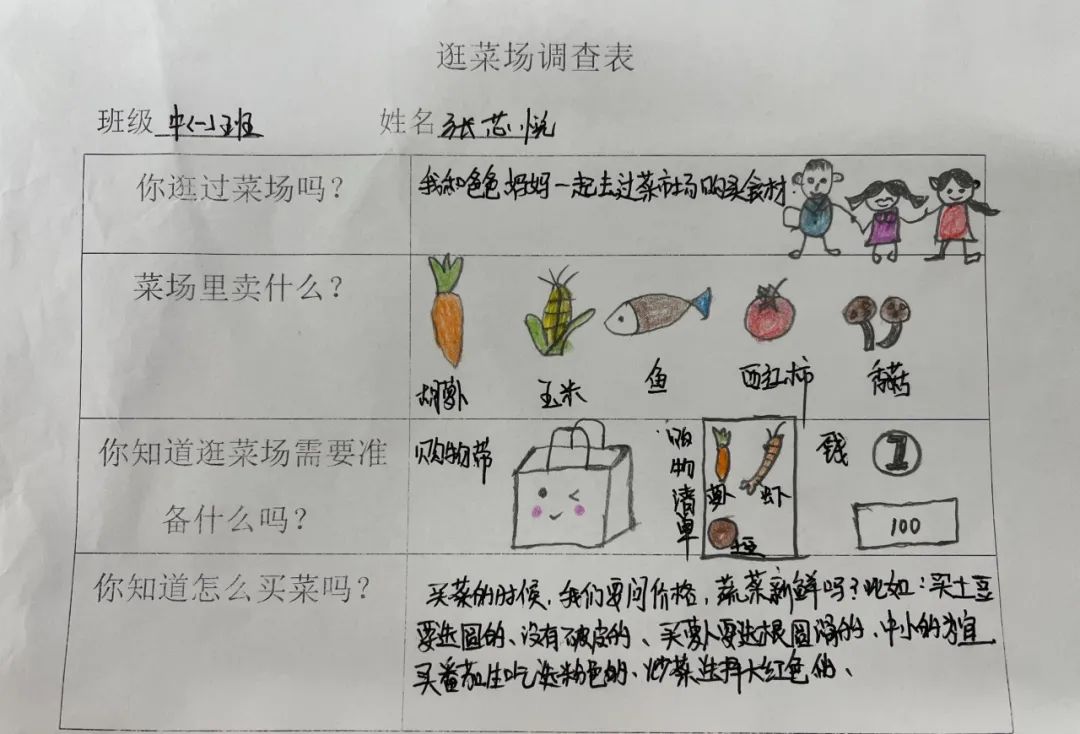 逛菜场调查表
班级 中(一)班 姓名 张芯悦
你逛过菜场吗？ 我和爸爸妈妈一起去过菜市场购买食材.
菜场里卖什么？
胡萝卜 玉米 鱼 西红柿 香菇
你知道逛菜场需要准
备什么吗？
购物带
购物清单
萝卜 虾
土豆
钱
1
100
你知道怎么买菜吗？
买菜的时候，我们要问价格，蔬菜新鲜吗？比如：买土豆
要选圆的、没有破皮的、买萝卜要选根圆滑的、中小的为宜
买番茄生吃选粉色的、炒菜选择大红色的、